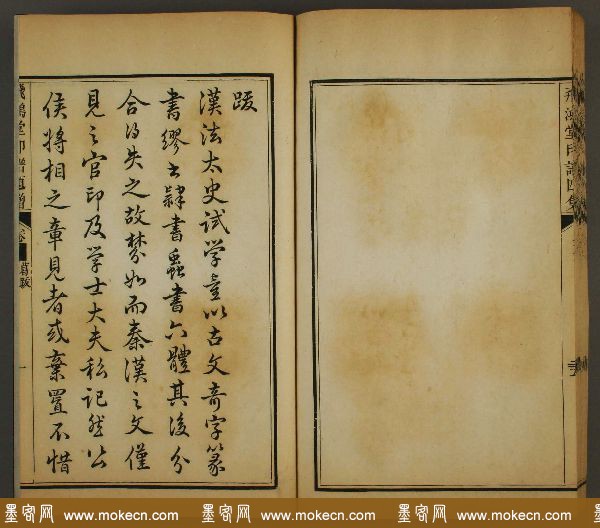 飛鴻堂印譜四集
跋
漢法太史试学童以古文奇字篆
書繆书隸書蟲書六體其後分
合得失之故棼如而秦漢之文僅
見之官印及学士大夫私記然公
侯將相之章見者或棄置不惜
飛鴻堂印譜
卷
葛跋
一
墨客网 www.mokecn.com 墨客网 www.mokecn.com 墨客网 www.mokecn.com